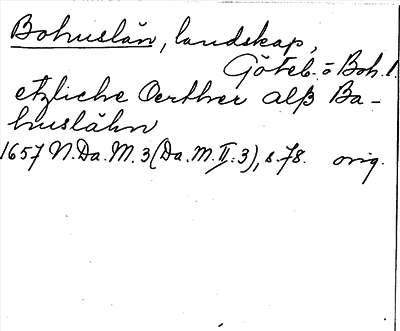 Bohuslän, landskap,
Göteb. o Boh. l.
etzliche Oerther alß Ba-
huslähn
1657 N.Da.M. 3 (Da.M.II:3), s. 78. orig.